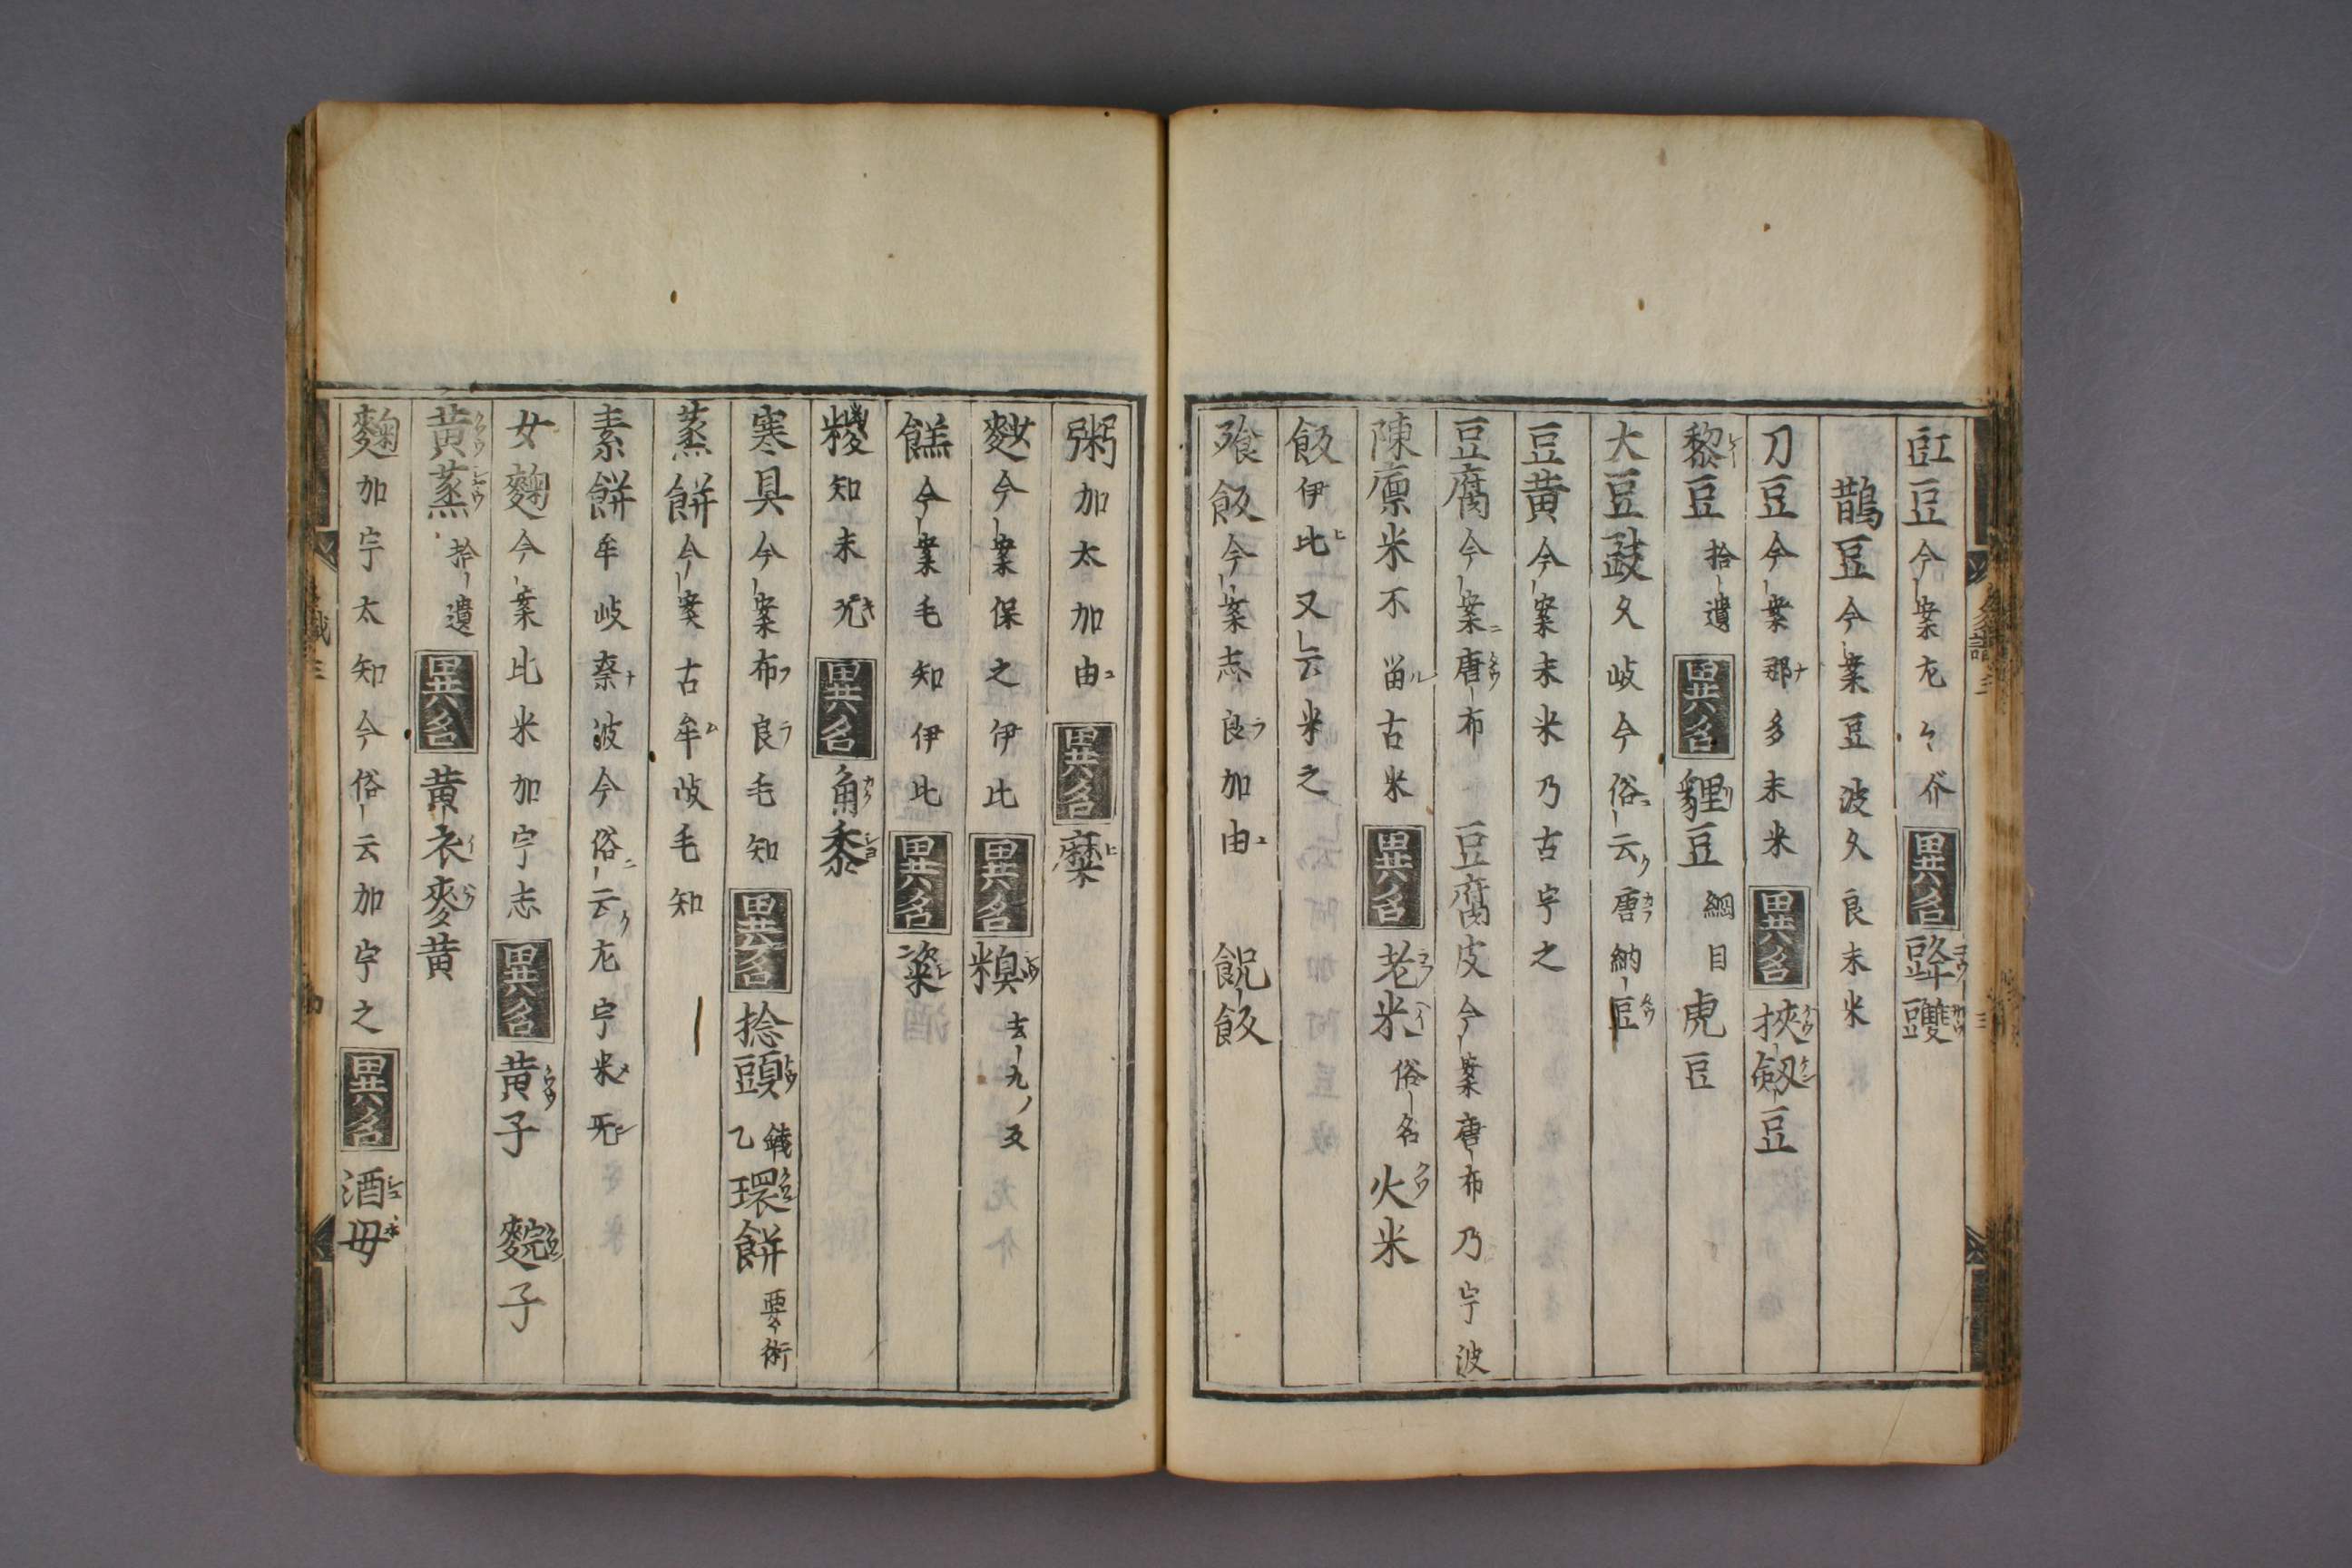 豇豆今案左々介異名䜶䝄
鵲豆今案豆波久良末米
刀豆今案那多末米異名挾劔豆
黎豆拾遺異名貍豆綱目虎豆
大豆豉久岐今俗云唐納豆
豆黄今案末米乃古宇之
豆腐今案唐布 豆腐皮今案唐布乃宇波
陳廪米不留古米異名老米俗名火米
飯伊比又云米之
飱飯今案志良加由 飯
粥加太加由異名糜
麨今案保之伊比異名糗去九ノ反
餻今案毛知伊比異名粢
糉知末岐異名角黍
寒具今案布良毛知異名捻頭錢乙環餅要術
蒸餅今案古牟岐毛知
素餅牟岐奈波今俗云左宇米无
女麴今案比米加宇志異名黄子 䴷子
黄蒸拾遺異名黄衣麥黄
麴加宇太知今俗云加宇之異名酒毋
多識三